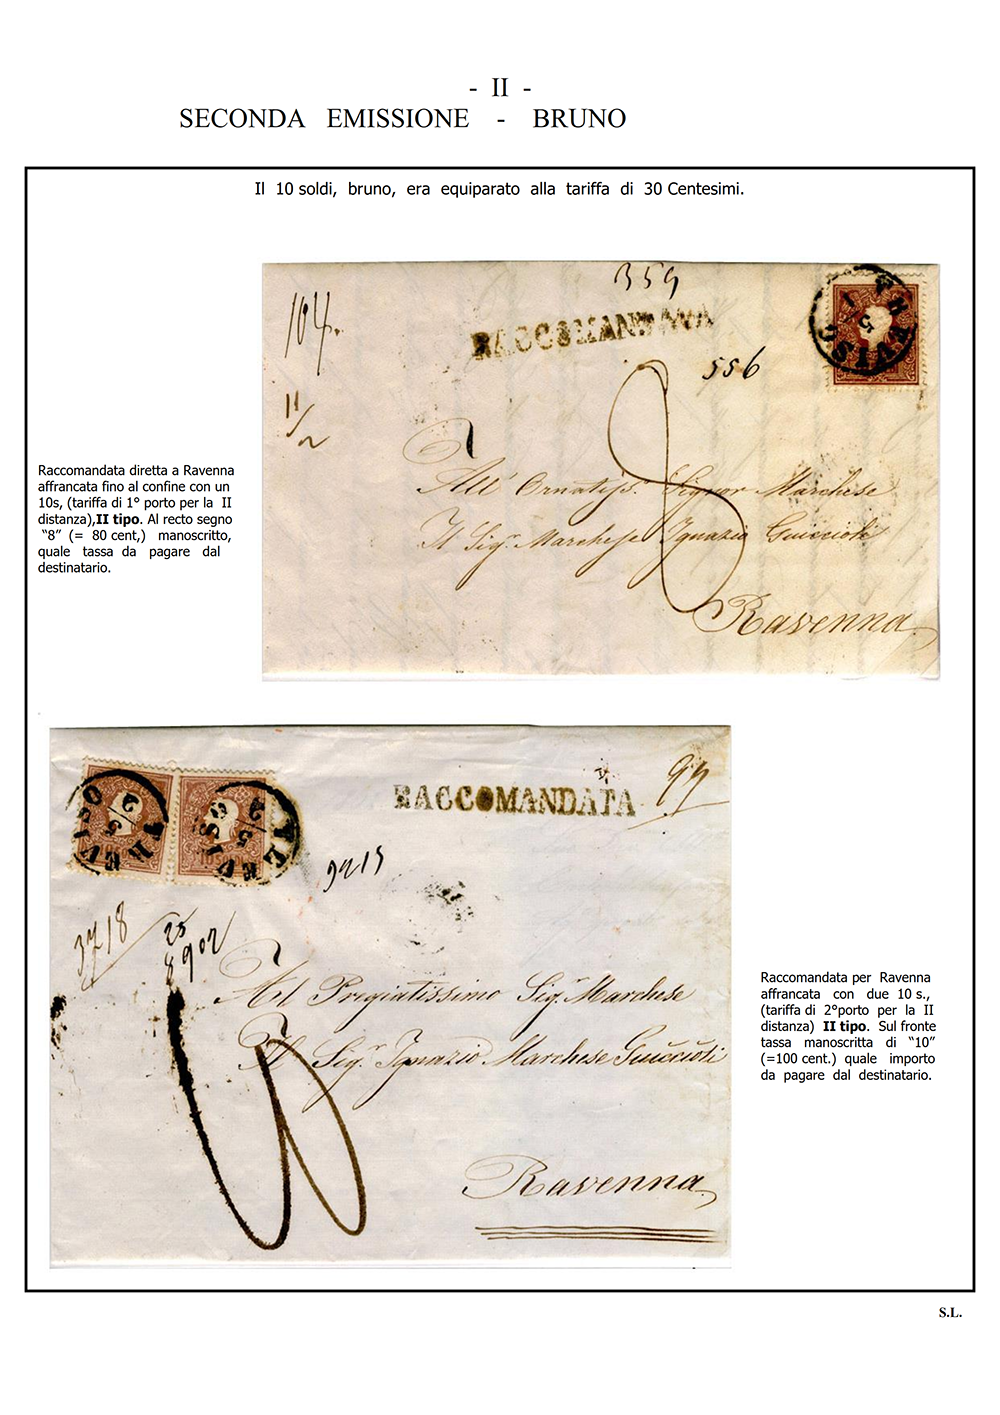 - II -
SECONDA EMISSIONE - BRUNO
Il 10 soldi, bruno, era equiparato alla tariffa di 30 Centesimi.
359
104.
RACCOMANDATA
TREVISO
5
556
11/2
8
All' Ornatiss. Signor Marchese
Il Sigr. Marchese Ignazio Guiccioli
Ravenna
Raccomandata diretta a Ravenna
affrancata fino al confine con un
10s, (tariffa di 1° porto per la II
distanza),II tipo. Al recto segno
“8” (= 80 cent,) manoscritto,
quale tassa da pagare dal
destinatario.
RACCOMANDATA
TREVISO
2/5
TREVISO
2/5
9215
3718
Al Pregiatissimo Sig. Marchese
Il Sigr. Ignazio Marchese Guiccioli
10
Ravenna
Raccomandata per Ravenna
affrancata con due 10 s.,
(tariffa di 2°porto per la II
distanza) II tipo. Sul fronte
tassa manoscritta di “10”
(=100 cent.) quale importo
da pagare dal destinatario.
S.L.